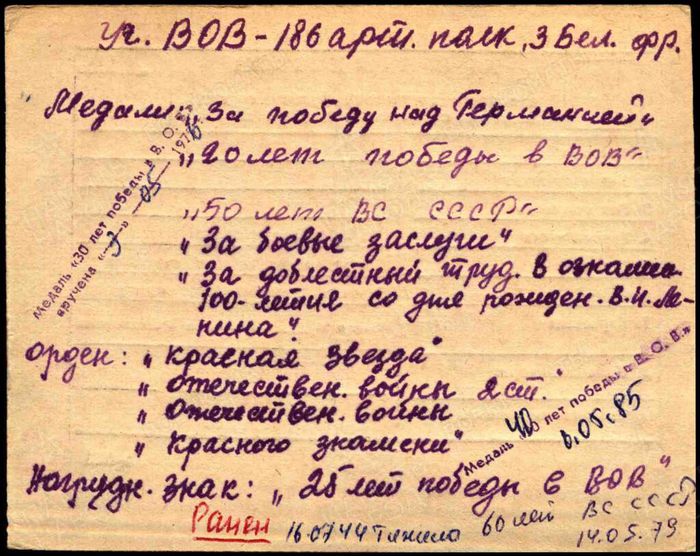 Уч. ВОВ - 186 арт. полк, 3 Бел. фр.
Медали: „За победу над Германией"
„20 лет победы в ВОВ"
„50 лет ВС СССР"
„За боевые заслуги"
„За доблестный труд. В ознамен.
100-летия со дня рожден. В.И. Ле-
нина".
орден: „Красная звезда"
„Отечествен. войны 2 ст."
„Отечествен. войны
„Красного знамени"
Нагрудн. знак: „25 лет победы в ВОВ"
Ранен 16 07 44 Тяжело
60 лет ВС СССР
14.05.79
Медаль «30 лет победы в В. О. В.»
вручена «3» 05 1976
Медаль «40 лет победы в В. О. В.»
6.05.85